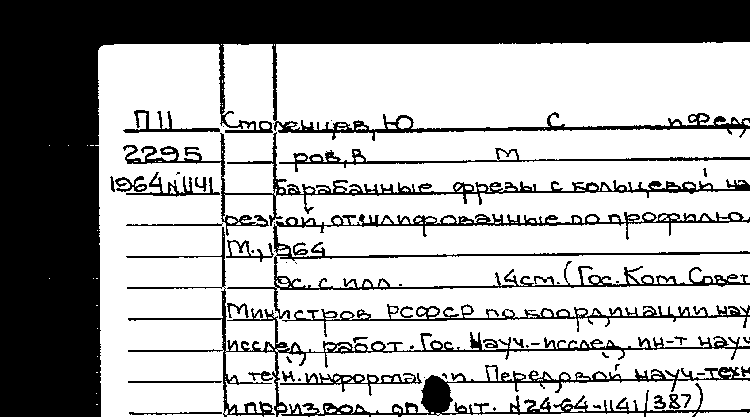 П11 Столенцев, Ю С и Федо
2295 ров, В М
1964 N1141 Барабанные фрезы с кольцевой на
резкой, отшлифованные по профилю.
М., 1964
9с. с илл. 14см. (Гос. Ком. Совет
Министров РСФСР по координации нау
исслед. работ. Гос. Науч.-исслед. ин-т науч
и техн. информации. Передовой науч.-техн
и производ. опыт. N24-64-1141/387)